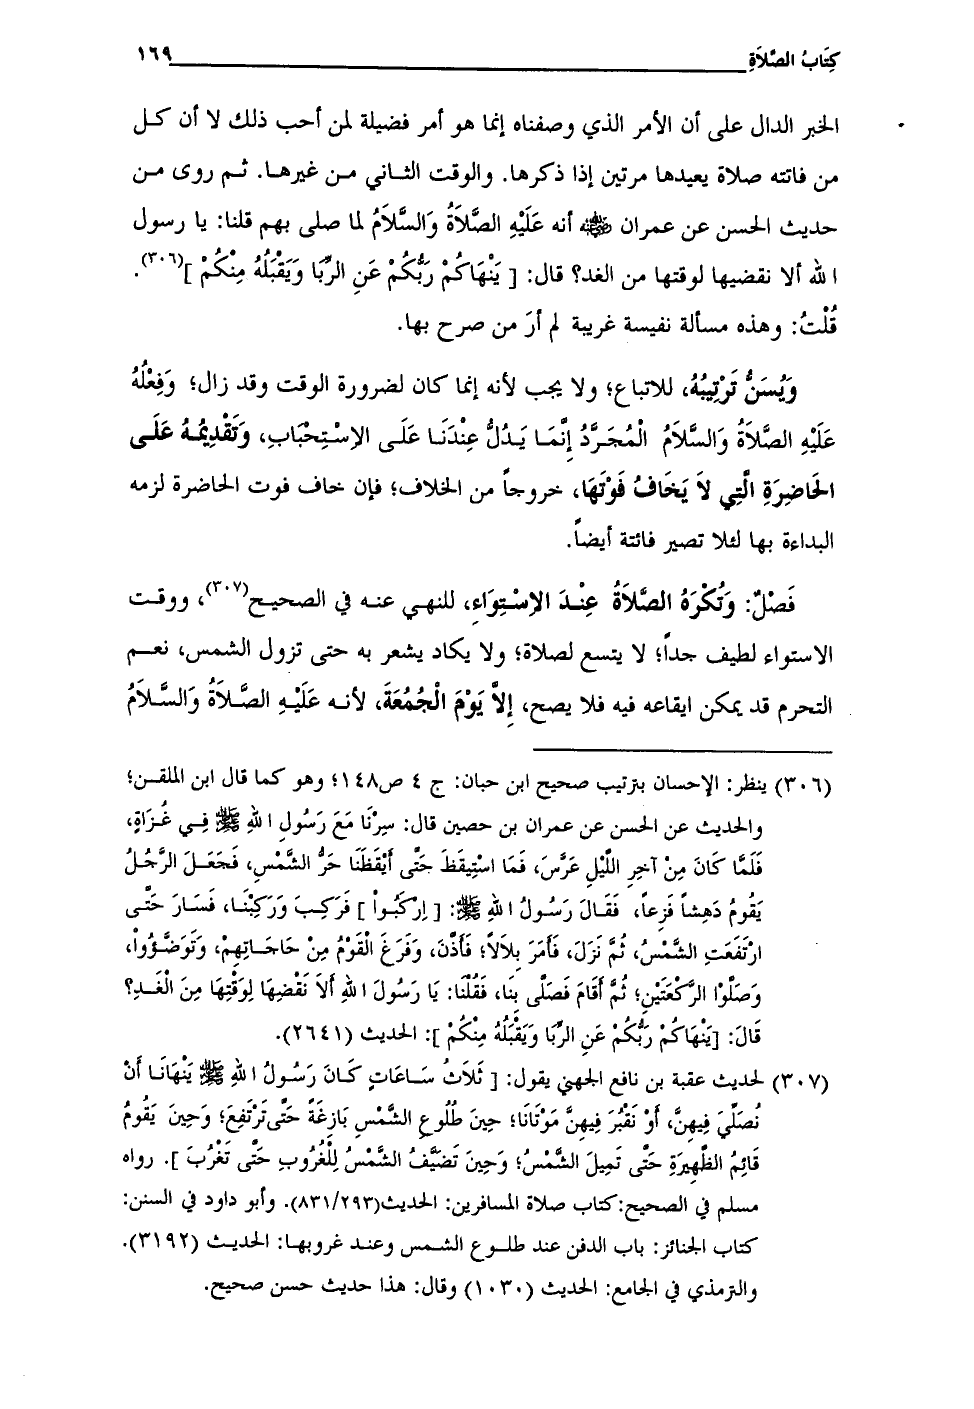 كِتَابُ الصَّلاَةِ ١٦٩
الخبر الدال على أن الأمر الذي وصفناه إنما هو أمر فضيلة لمن أحب ذلك لا أن كل
من فاتته صلاة يعيدها مرتين إذا ذكرها. والوقت الثاني من غيرها. ثم روى من
حديث الحسن عن عمران ﷺ أنه عَلَيْهِ الصَّلاَةُ وَالسَّلاَمُ لما صلى بهم قلنا: يا رسول
الله ألا نقضيها لوقتها من الغد؟ قال: [ يَنْهَاكُمْ رَبُّكُمْ عَنِ الرِّبَا وَيَقْبَلُهُ مِنْكُمْ ](٣٠٦).
قُلْتُ: وهذه مسألة نفيسة غريبة لم أرَ من صرح بها.
وَيُسَنُّ تَرْتِيبُهُ، للاتباع؛ ولا يجب لأنه إنما كان لضرورة الوقت وقد زال؛ وَفِعْلُهُ
عَلَيْهِ الصَّلاَةُ وَالسَّلاَمُ الْمُجَرَّدُ إِنَّمَا يَدُلُّ عِنْدَنَا عَلَى الاِسْتِحْبَابِ، وَتَقْدِيمُهُ عَلَى
الحَاضِرَةِ الَّتِي لاَ يَخَافُ فَوْتَهَا، خروجاً من الخلاف؛ فإن خاف فوت الحاضرة لزمه
البداءة بها لئلا تصير فائتة أيضاً.
فَصْلٌ: وَتُكْرَهُ الصَّلاَةُ عِنْدَ الاِسْتِوَاءِ، للنهي عنه في الصحيح(٣٠٧)، ووقت
الاستواء لطيف جداً؛ لا يتسع لصلاة؛ ولا يكاد يشعر به حتى تزول الشمس، نعم
التحرم قد يمكن ايقاعه فيه فلا يصح، إِلاَّ يَوْمَ الْجُمُعَةَ، لأنه عَلَيْهِ الصَّلاَةُ وَالسَّلاَمُ
(٣٠٦) ينظر: الإحسان بترتيب صحيح ابن حبان: ج ٤ ص١٤٨؛ وهو كما قال ابن الملقن؛
والحديث عن الحسن عن عمران بن حصين قال: سِرْنَا مَعَ رَسُولِ اللهِ ﷺ فِي غُزَاةٍ،
فَلَمَّا كَانَ مِنْ آخِرِ اللَّيْلِ عَرَّسَ، فَمَا اسْتِيقَظَ حَتَّى أَيْقَظَنَا حَرُّ الشَّمْسِ، فَجَعَلَ الرَّجُلُ
يَقُومُ دَهِشاً فَزِعاً، فَقَالَ رَسُولُ اللهِ ﷺ: [ اِرْكَبُواْ ] فَرَكِبَ وَرَكِبْنَا، فَسَارَ حَتَّى
ارْتَفَعَتِ الشَّمْسُ، ثُمَّ نَزَلَ، فَأَمَرَ بِلاَلاً؛ فَأَذَّنَ، وَفَرَغَ الْقَوْمُ مِنْ حَاجَاتِهِمْ، وَتَوَضَّؤُواْ،
وَصَلَّوْا الرَّكْعَتَيْنِ؛ ثُمَّ أَقَامَ فَصَلَّى بِنَا، فَقُلْنَا: يَا رَسُولَ اللهِ أَلاَ نَقْضِهَا لِوَقْتِهَا مِنَ الْغَدِ؟
قَالَ: [يَنْهَاكُمْ رَبُّكُمْ عَنِ الرِّبَا وَيَقْبَلُهُ مِنْكُمْ ]: الحديث (٢٦٤١).
(٣٠٧) لحديث عقبة بن نافع الجهني يقول: [ ثَلاَثُ سَاعَاتٍ كَانَ رَسُولُ اللهِ ﷺ يَنْهَانَا أَنْ
نُصَلِّيَ فِيهِنَّ، أَوْ نَقْبُرَ فِيهِنَّ مَوْتَانَا؛ حِينَ طُلُوعِ الشَّمْسِ بَازِغَةً حَتَّى تَرْتَفِعَ؛ وَحِينَ يَقُومُ
قَائِمُ الظَّهِيرَةِ حَتَّى تَمِيلَ الشَّمْسُ؛ وَحِينَ تَضَيَّفُ الشَّمْسُ لِلْغُرُوبِ حَتَّى تَغْرُبَ ]. رواه
مسلم في الصحيح:كتاب صلاة المسافرين: الحديث(٨٣١/٢٩٣). وأبو داود في السنن:
كتاب الجنائز: باب الدفن عند طلوع الشمس وعند غروبها: الحديث (٣١٩٢).
والترمذي في الجامع: الحديث (١٠٣٠) وقال: هذا حديث حسن صحيح.